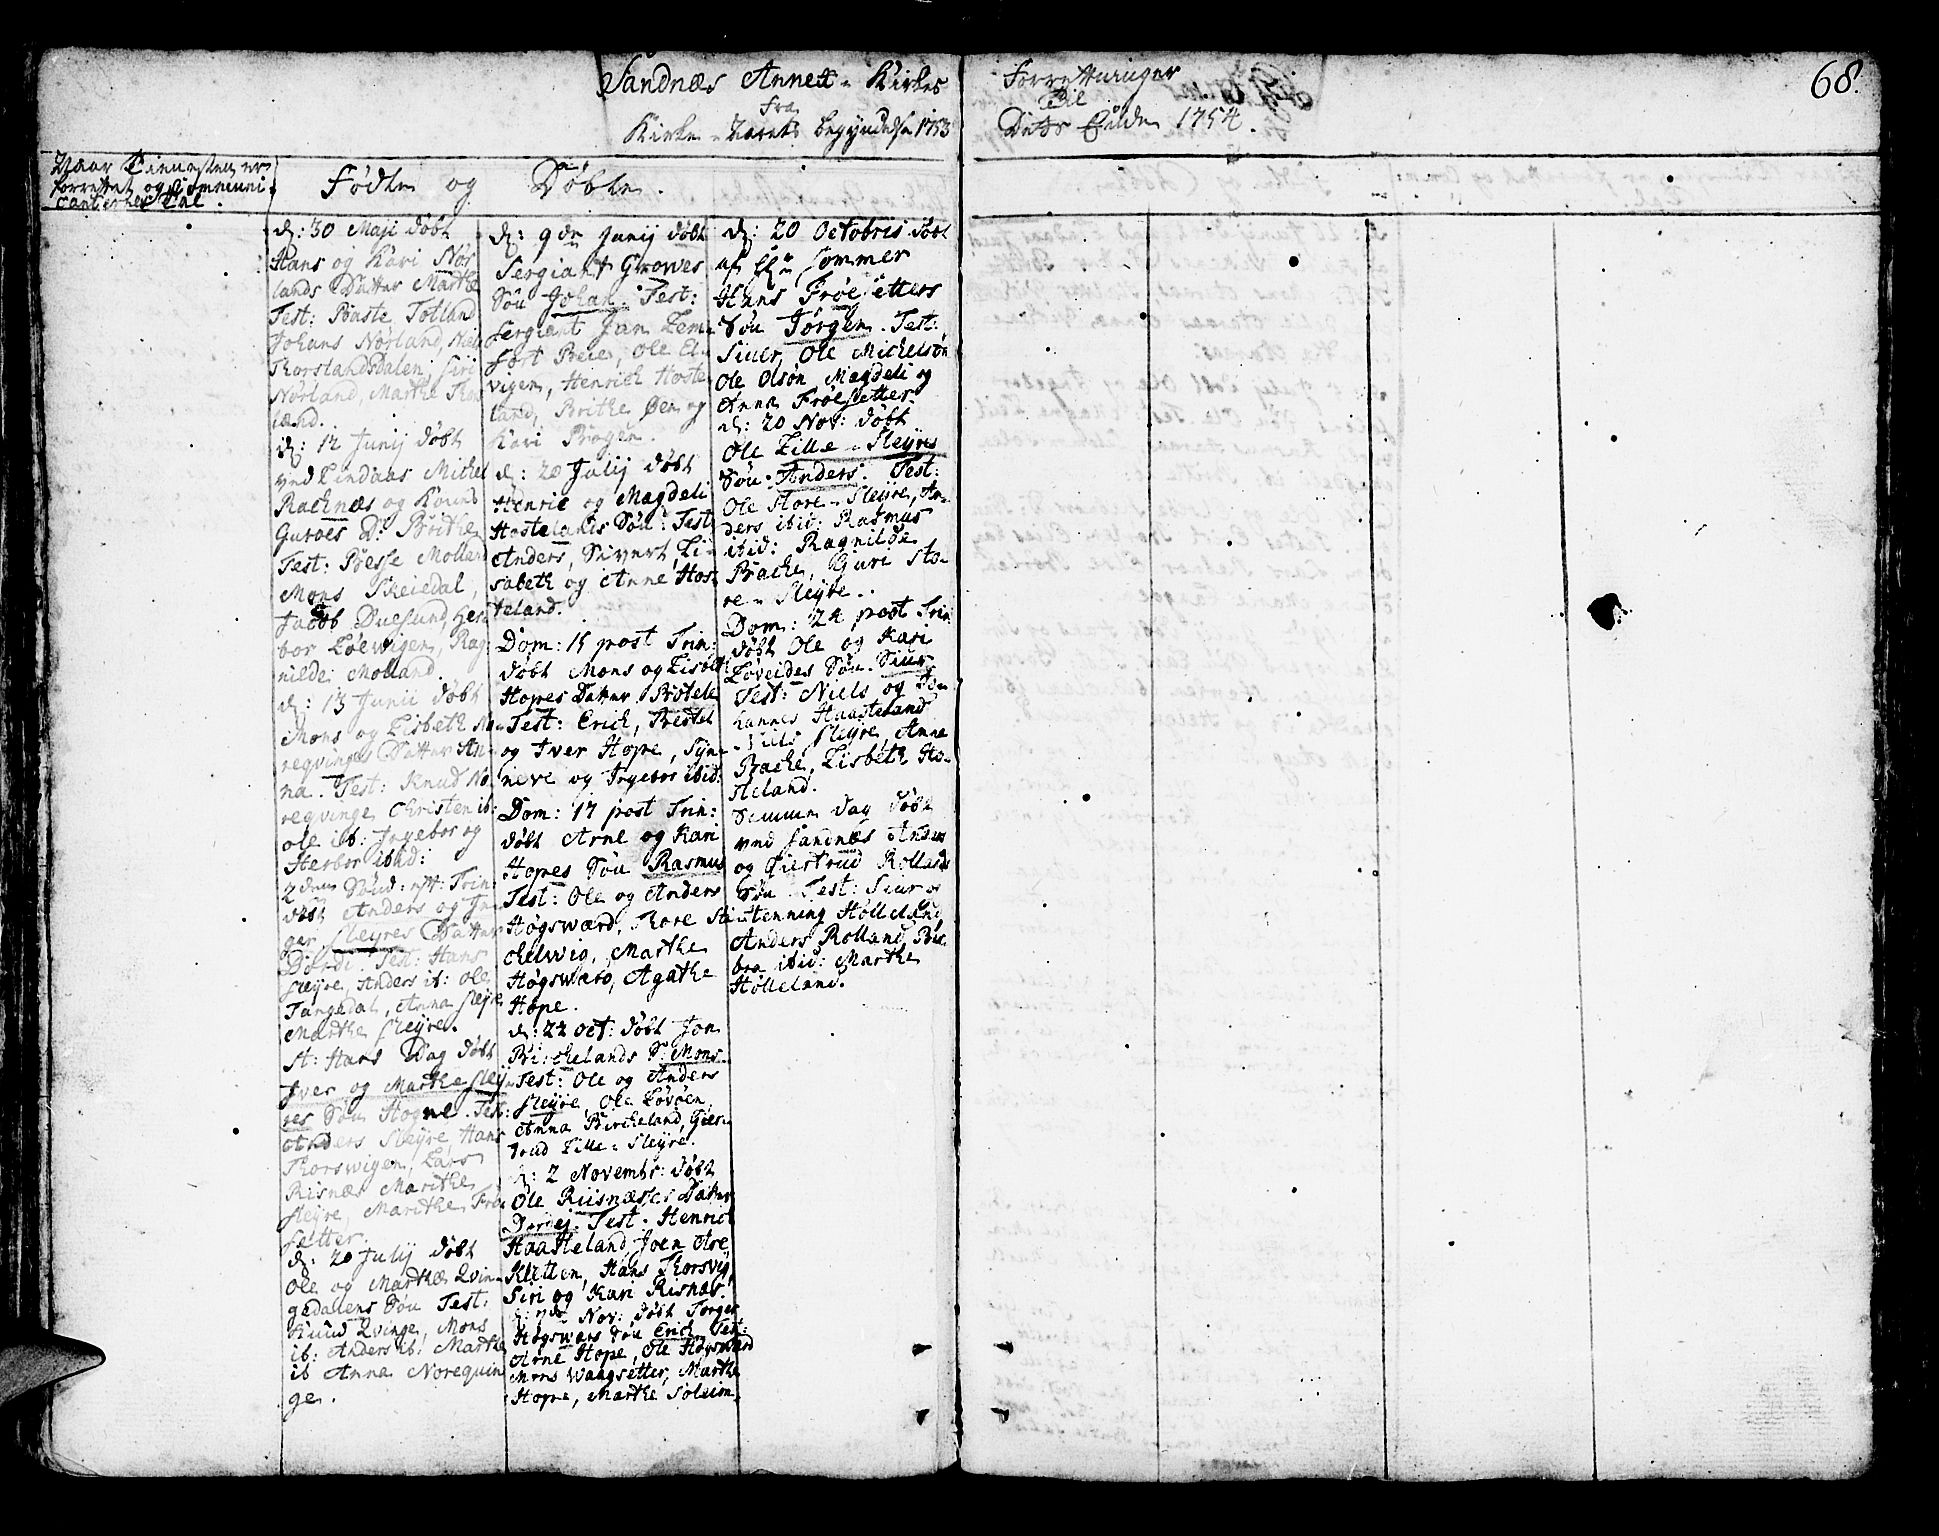 Sandnæs Annex-Kirkes Forretninger 68.
Fra Til
Kirke-Aarets begyndelse 1753 Dets Ende 1754.
Naar Tienesten er
forrettet og Communi-
canternes Tal.
Födte og Döbte.
d: 30 Maji döbt
Hans og Kari Nör
lands Datter Marthe
Test: Baste Totland
Johans Nørland, Niels
Thorslandsdalen, Siri
Nørland, Marthe Thor
land.
d: 12 Junij döbt
ved Lindaas Michel
Racknæs og Karen
Guroes D. Brithe
Test: Böesse Molland
Mons Skeiedal,
Jacob Duesund, Her
bor Löewigen, Rag
nilde Molland.
d: 13 Junii döbt
Mons og Lisbeth No
reqvinges Datter An
na. Test: Knud No
reqvinge, Christen ib:
ole ib: Ingebor og
Herbor ibid:
2den Sönd: eft: Trin:
döbt Anders og In
ger Sleyres Datter
Dördi. Test: Hans
Sleyre, Anders ib: Ole
Tangedal, Anna Sleyre
Marthe Sleyre.
St: Hans Dag döbt
Iver og Marthe Sley-
res Sön Hogne. Test:
Anders Sleyre, Hans
Thorswigen, Lars
Risnæs Marithe
Sleyre, Marithe Frö
setter.
d: 20 Julij döbt
Ole og Marthe Qvin-
gedalens Sön Test:
Knud Qvinge, Mons
ib: Anders ib: Marthe
ib Anna Norequin
ge.
d: 9de Junij döbt
Sergiant Growes
Sön Johan. Test:
Sergiant Jan Lem-
fört Beie, Ole El-
vigen, Henrich Hoste
land, Brithe Øen og
Kari Brogen.
d: 20 Julij döbt
Henric og Magdeli
Hostelands Sön: Test
Anders, Sivert, Li-
sabeth og Anne Hos
teland.
Dom: 15 post Trin:
döbt Mons og Lisbeth
Hopes Datter Brotele
Test: Erich, Brestel
og Iver Hope, Syn-
neve og Ingebor ibid:
Dom: 17 post Trin:
döbt Arne og Kari
Hopes Sön Rasmus
Test: Ole og Anders
Högswærd, Thore Sti
chelwig, Marthe
Högswærd, Agathe
Hope.
d: 22 Oct: döbt Jon
Birchelands S: Mons
Test: Ole og Anders
Sleyre, Ole Lövöen
Anna Bircheland, Gies-
trud Lille-Sleyre.
d: 2 Novembr: döbt
Ole Riisnæsses Datter
Dordej. Test. Henrich
Haasteland, Joen Are
Kletten, Hans Thorsvig
Siri og Kari Risnæs.
d: 7de Nov: döbt Torger
Högswars Sön Erich Test:
Arne Hope, Ole Högsværd
Mons Wangsetter, Marthe
Hope, Marthe Soleim.
d: 20 Octobris döbt
af Hr: Sommer
Hans Fröesetters
Sön Jörgen. Test:
Siuer, Ole Michelsön
Ole Olsön Magdeli og
Anna Fröesetter.
d: 20 Nov: döbt
Ole Lille-Sleyres
Sön Anders. Test:
Ole Store-Sleyre, An-
ders ibid: Rasmus
ibid: Ragnilde
Bache, Guri Sto-
re-Sleyre.
Dom: 24 post Trin
döbt Ole og Kari
Löveides Sön Siur
Test: Niels og Jo-
hannes Haasteland
Nils Sleyre, Anne
Bache, Lisbeth Ho-
steland.
Samme Dag döbt
ved Sandnæs Anders
og Giestrud Rollands
Sön Test: Siur og
Henning Holleland
Anders Rolland, Bar-
bra ibid: Marthe
Hölleland.